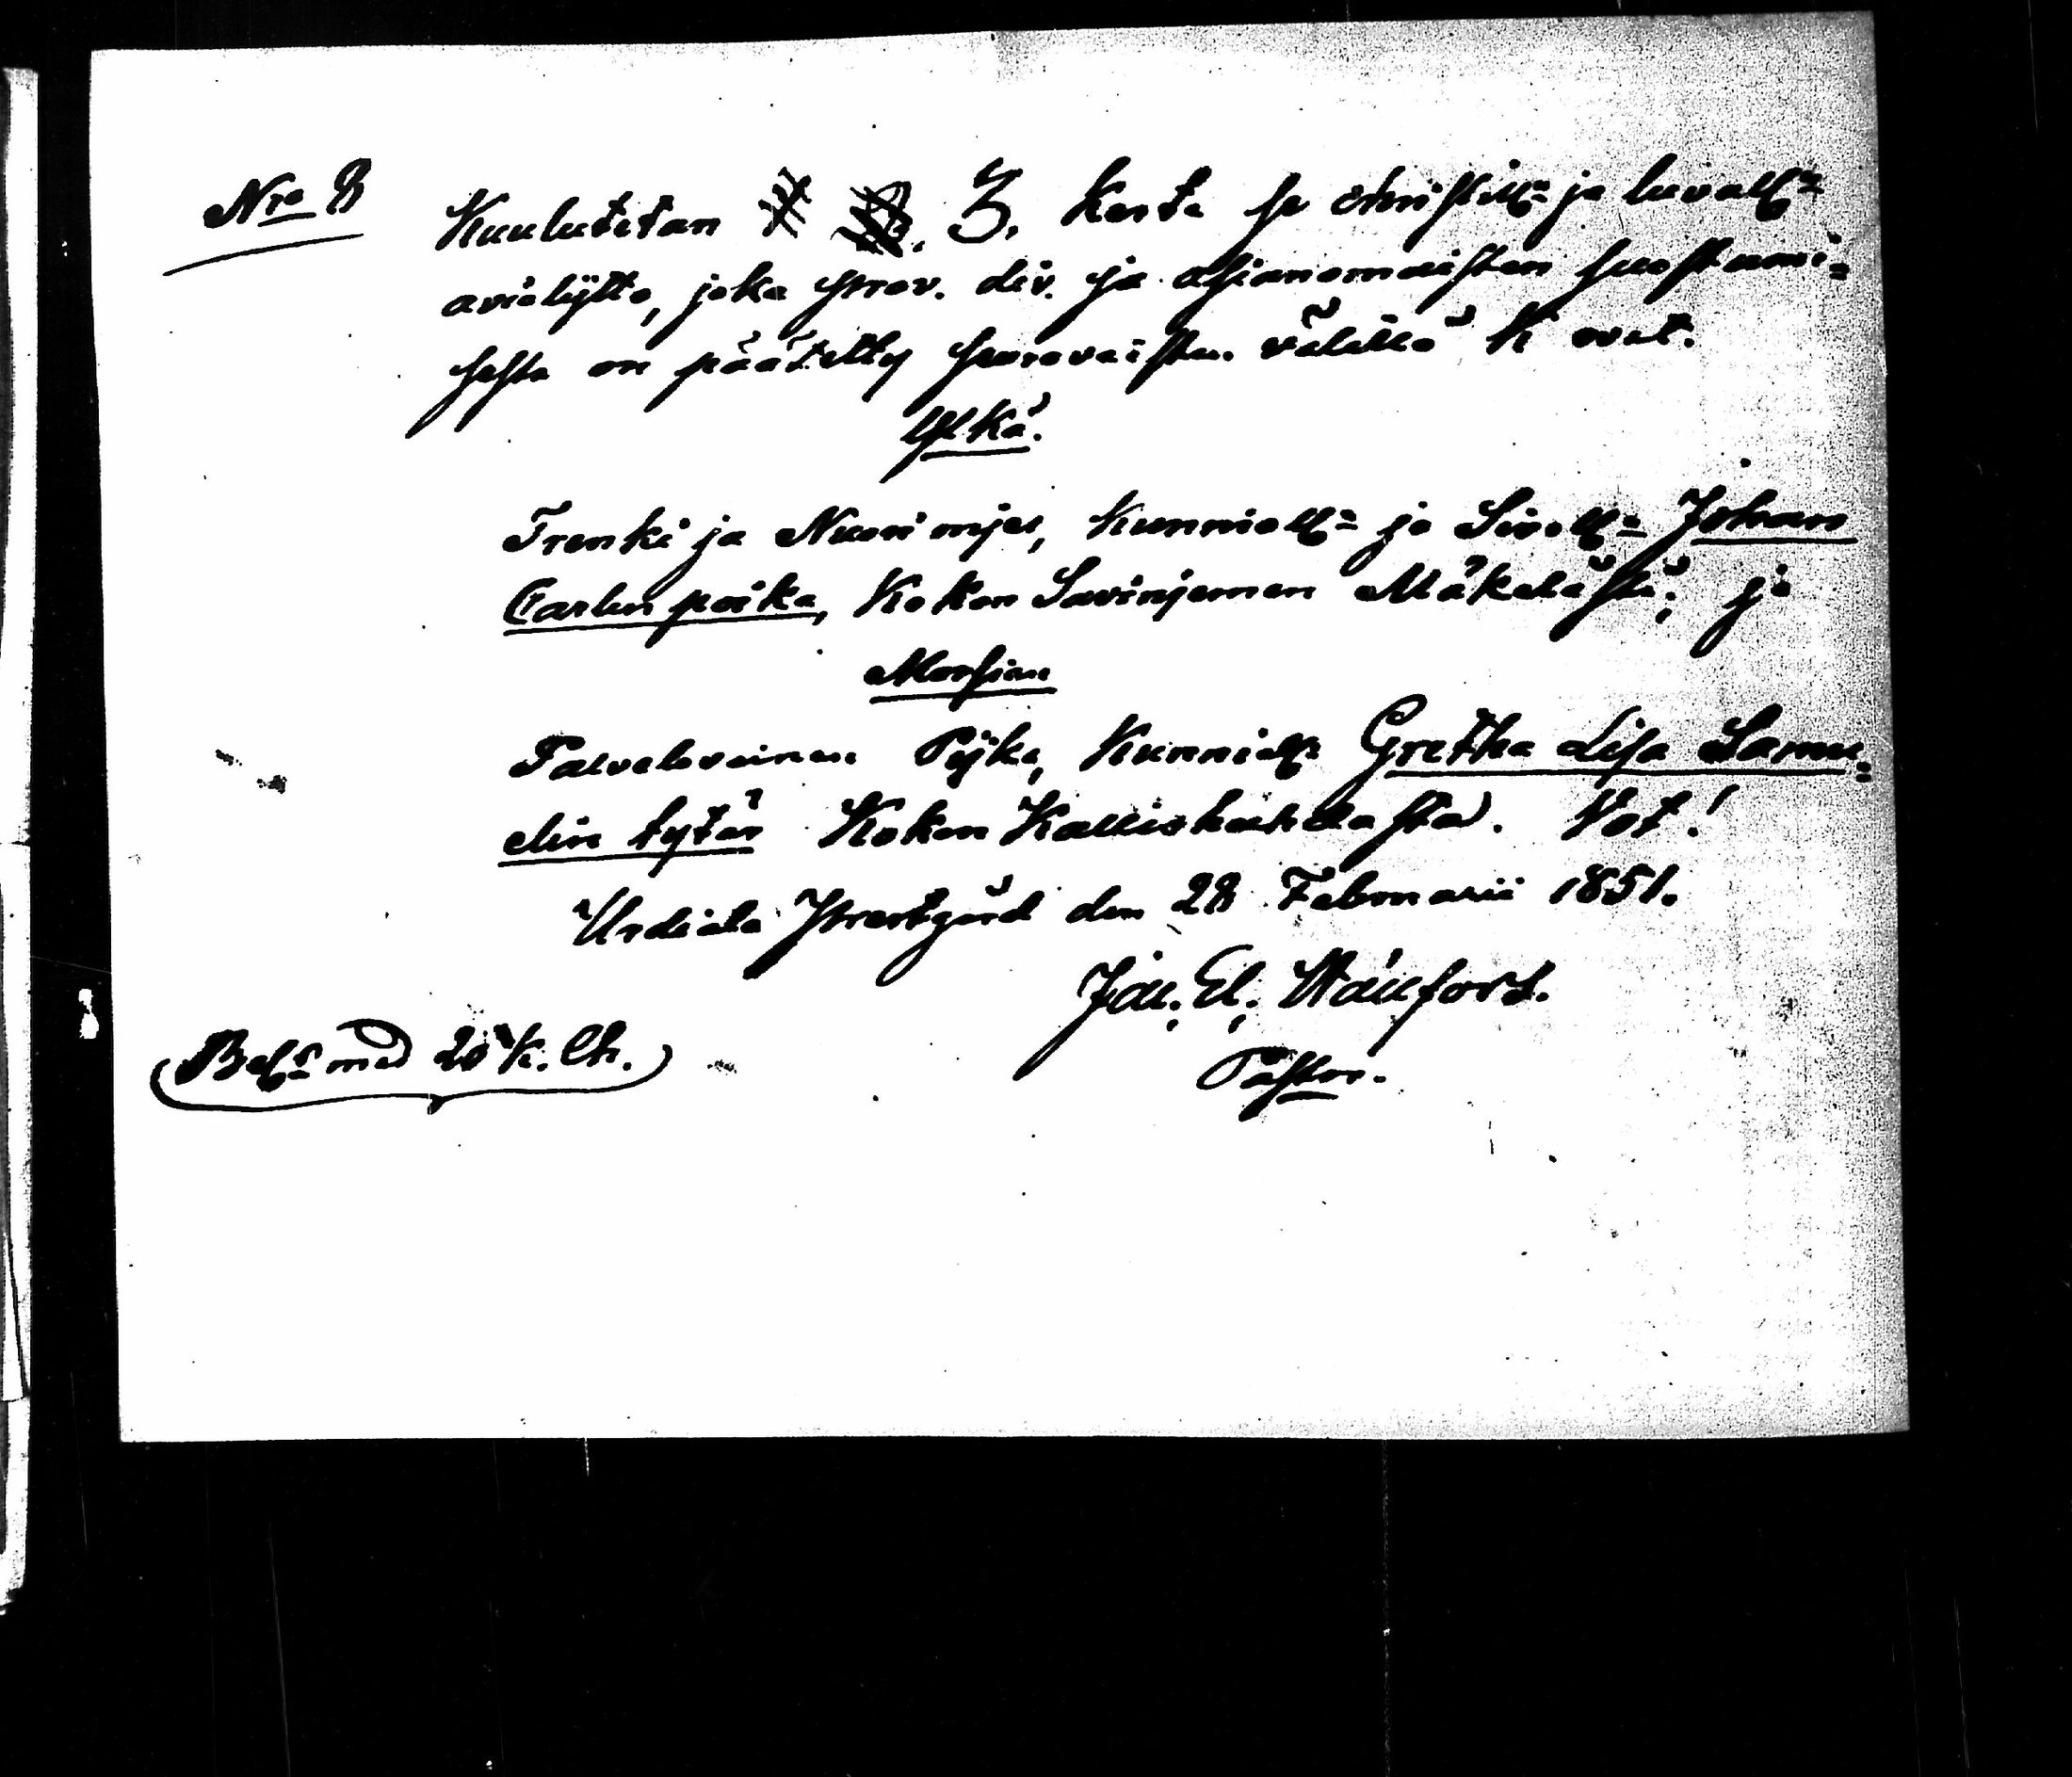 Nro 8
Kuulutetan 3. kerta se christill: ja luvall:
avioliitto, joka prov. div. ja asianomaisten suostumi=
sesta on päätetty seuravaisten välillä K ovat.
Ylkä.
Trenki ja Nuori mies, Kunniall: ja Siviall: Johan
Carlen poika, Kokon Savinjemen Mäkelästä; ja
Morsian
Palvelevainen Pijka, Kunniall: Gretha Lisa Samu=
elin tytär Kokon Kalliokuhdasta. Vot!
Urdiala Prestgård den 28 Februarii 1851.
Joh. El. Wallfors.
Pastor.
Bel: med 20 K. Ch.